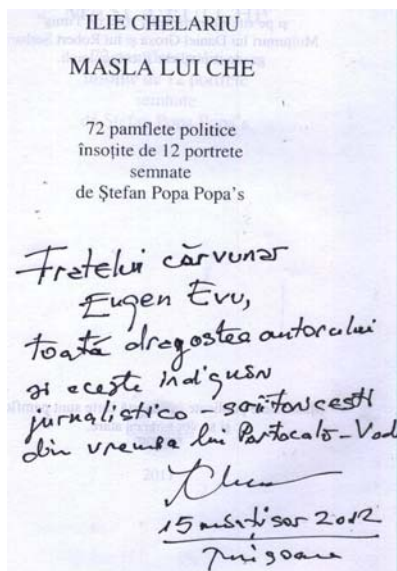 ILIE CHELARIU
MASLA LUI CHE
72 pamflete politice
însoțite de 12 portrete
semnate
de Ștefan Popa Popa's
Fratelui cărvunar
Eugen Evu,
toată dragostea autorului
și aceste indignări
jurnalistico-scriitoricești
din vremea lui Portocală-Vod
15 mărțișor 2012
Timișoara